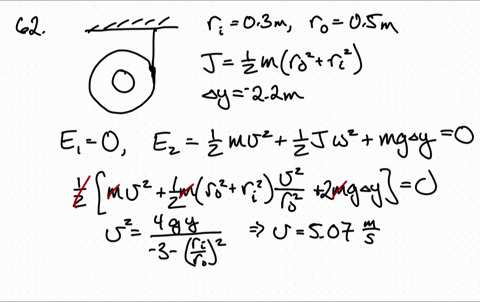 62.
r_i = 0.3m, r_o = 0.5m
J = ½ m (r_o² + r_i²)
Δy = -2.2m
E₁ = 0, E₂ = ½ mv² + ½ Jω² + mgΔy = 0
½ [mv² + ½ m (r_o² + r_i²) v²/r_o² + 2mgΔy] = 0
v² = 4gy / (-3 - (r_i/r_o)²) ⇒ v = 5.07 m/s